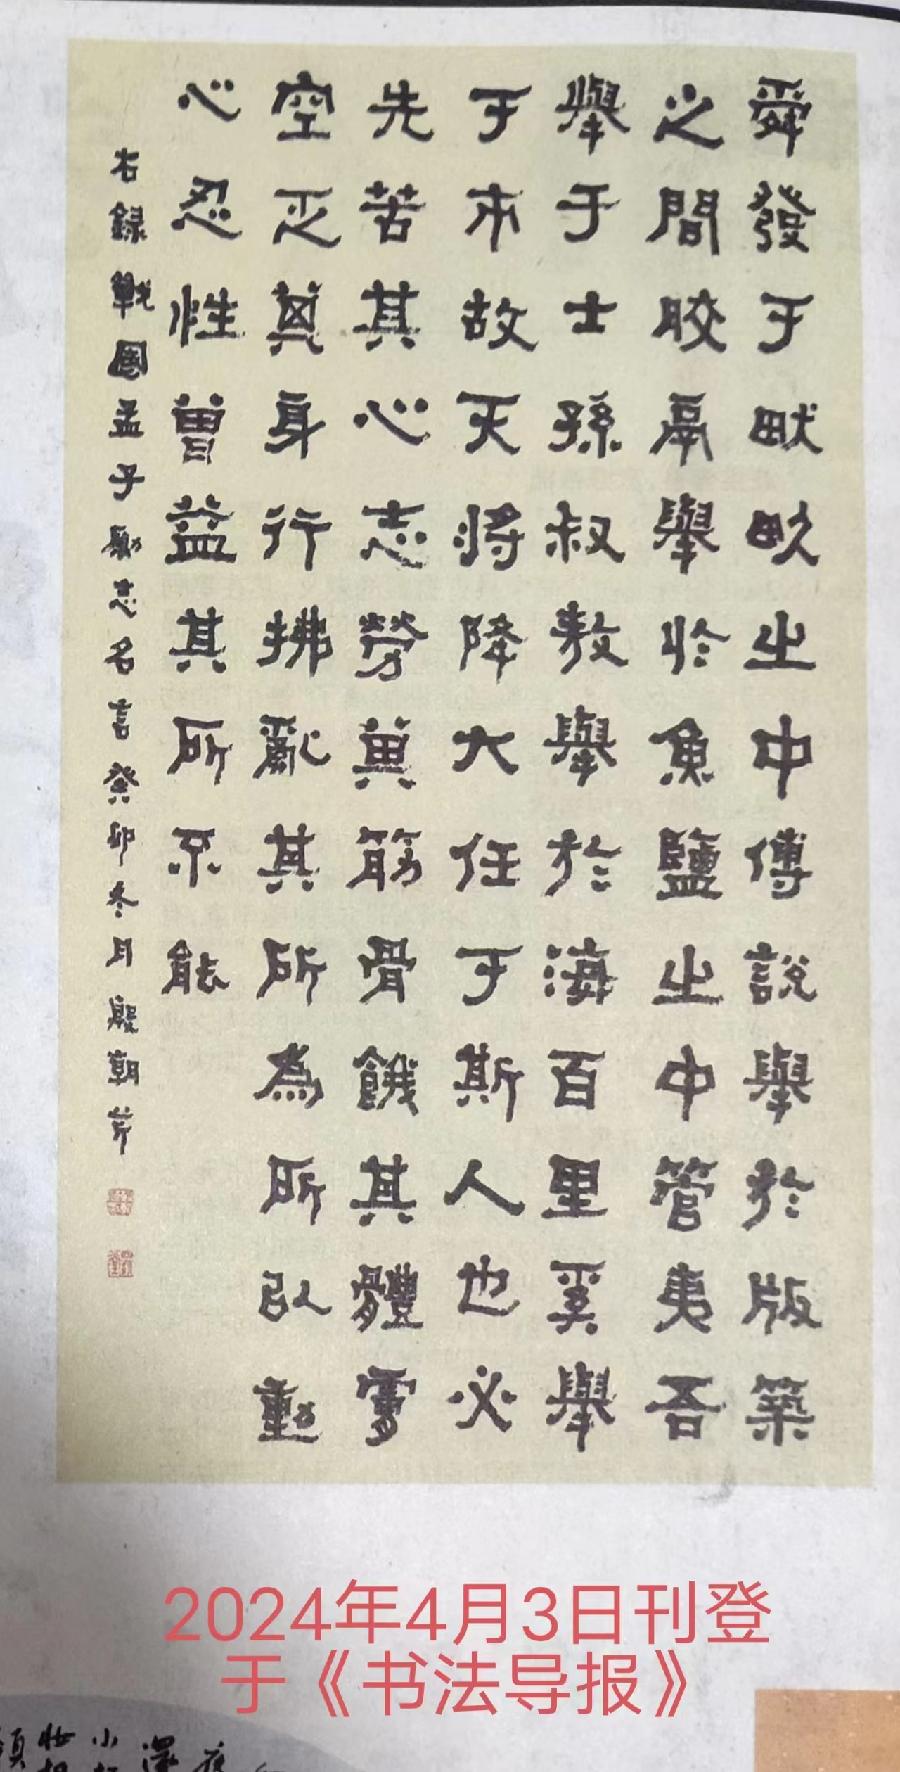 舜發于畎畝之中傅說舉於版築
之間胶鬲舉於魚鹽之中管夷吾
舉于士孫叔敖舉於海百里奚舉
于市故天將降大任于斯人也必
先苦其心志勞其筋骨餓其體膚
空乏其身行拂亂其所為所以動
心忍性曾益其所不能
右録戰國孟子勵志名言癸卯冬月殷朝芹
2024年4月3日刊登
于《书法导报》